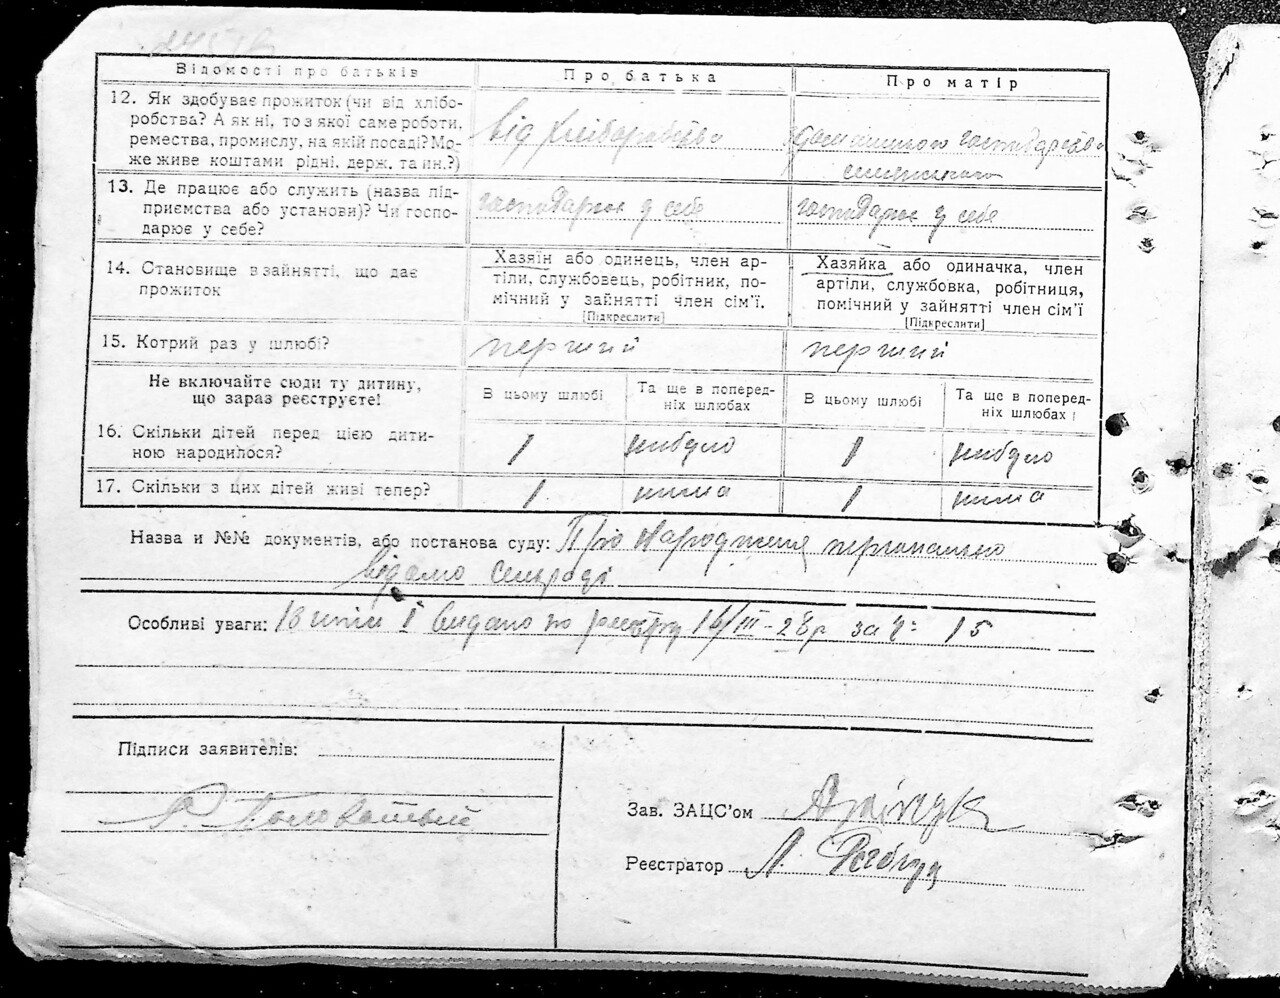 Відомості про батьків
Про батька
Про матір
12. Як здобуває прожиток (чи від хлібо-
робства? А як ні, то з якої саме роботи,
ремества, промислу, на якій посаді? Мо-
же живе коштами рідні, держ. та ин.?)
від хліборобства
господарства
13. Де працює або служить (назва під-
приємства або установи)? Чи госпо-
дарює у себе?
господарює у себе
господарює у себе
14. Становище в зайнятті, що дає
прожиток
Хазяїн або одинець, член ар-
тіли, службовець, робітник, по-
мічний у зайнятті член сім'ї.
[Підкреслити]
Хазяйка або одиначка, член
артіли, службовка, робітниця,
помічний у зайнятті член сім'ї
[Підкреслити]
15. Котрий раз у шлюбі?
перший
перший
Не включайте сюди ту дитину,
що зараз реєструєте!
В цьому шлюбі
Та ще в поперед-
ніх шлюбах
В цьому шлюбі
Та ще в поперед-
ніх шлюбах
16. Скільки дітей перед цією дити-
ною народилося?
1
небуло
1
небуло
17. Скільки з цих дітей живі тепер?
1
нима
1
нима
Назва и №№ документів, або постанова суду: Про народження персонально
відомо сельраді
Особливі уваги: Видано по реєстру 16/III-28р за №: 15
Підписи заявителів:
Зав. ЗАЦС'ом
Реєстратор Л.